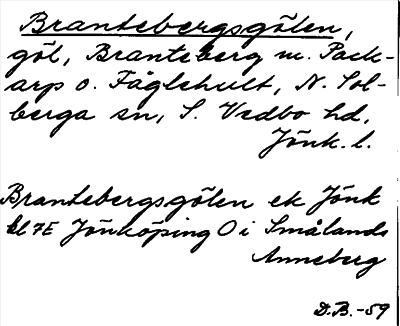 Brantebergsgölen,
göl, Branteberg m. Pack-
arp o. Fåglehult, N. Sol-
berga sn, S. Vedbo hd,
Jönk. l.
Brantebergsgölen ek Jönk
bl 7E Jönköping O i Smålands
Anneberg
D.B. -59